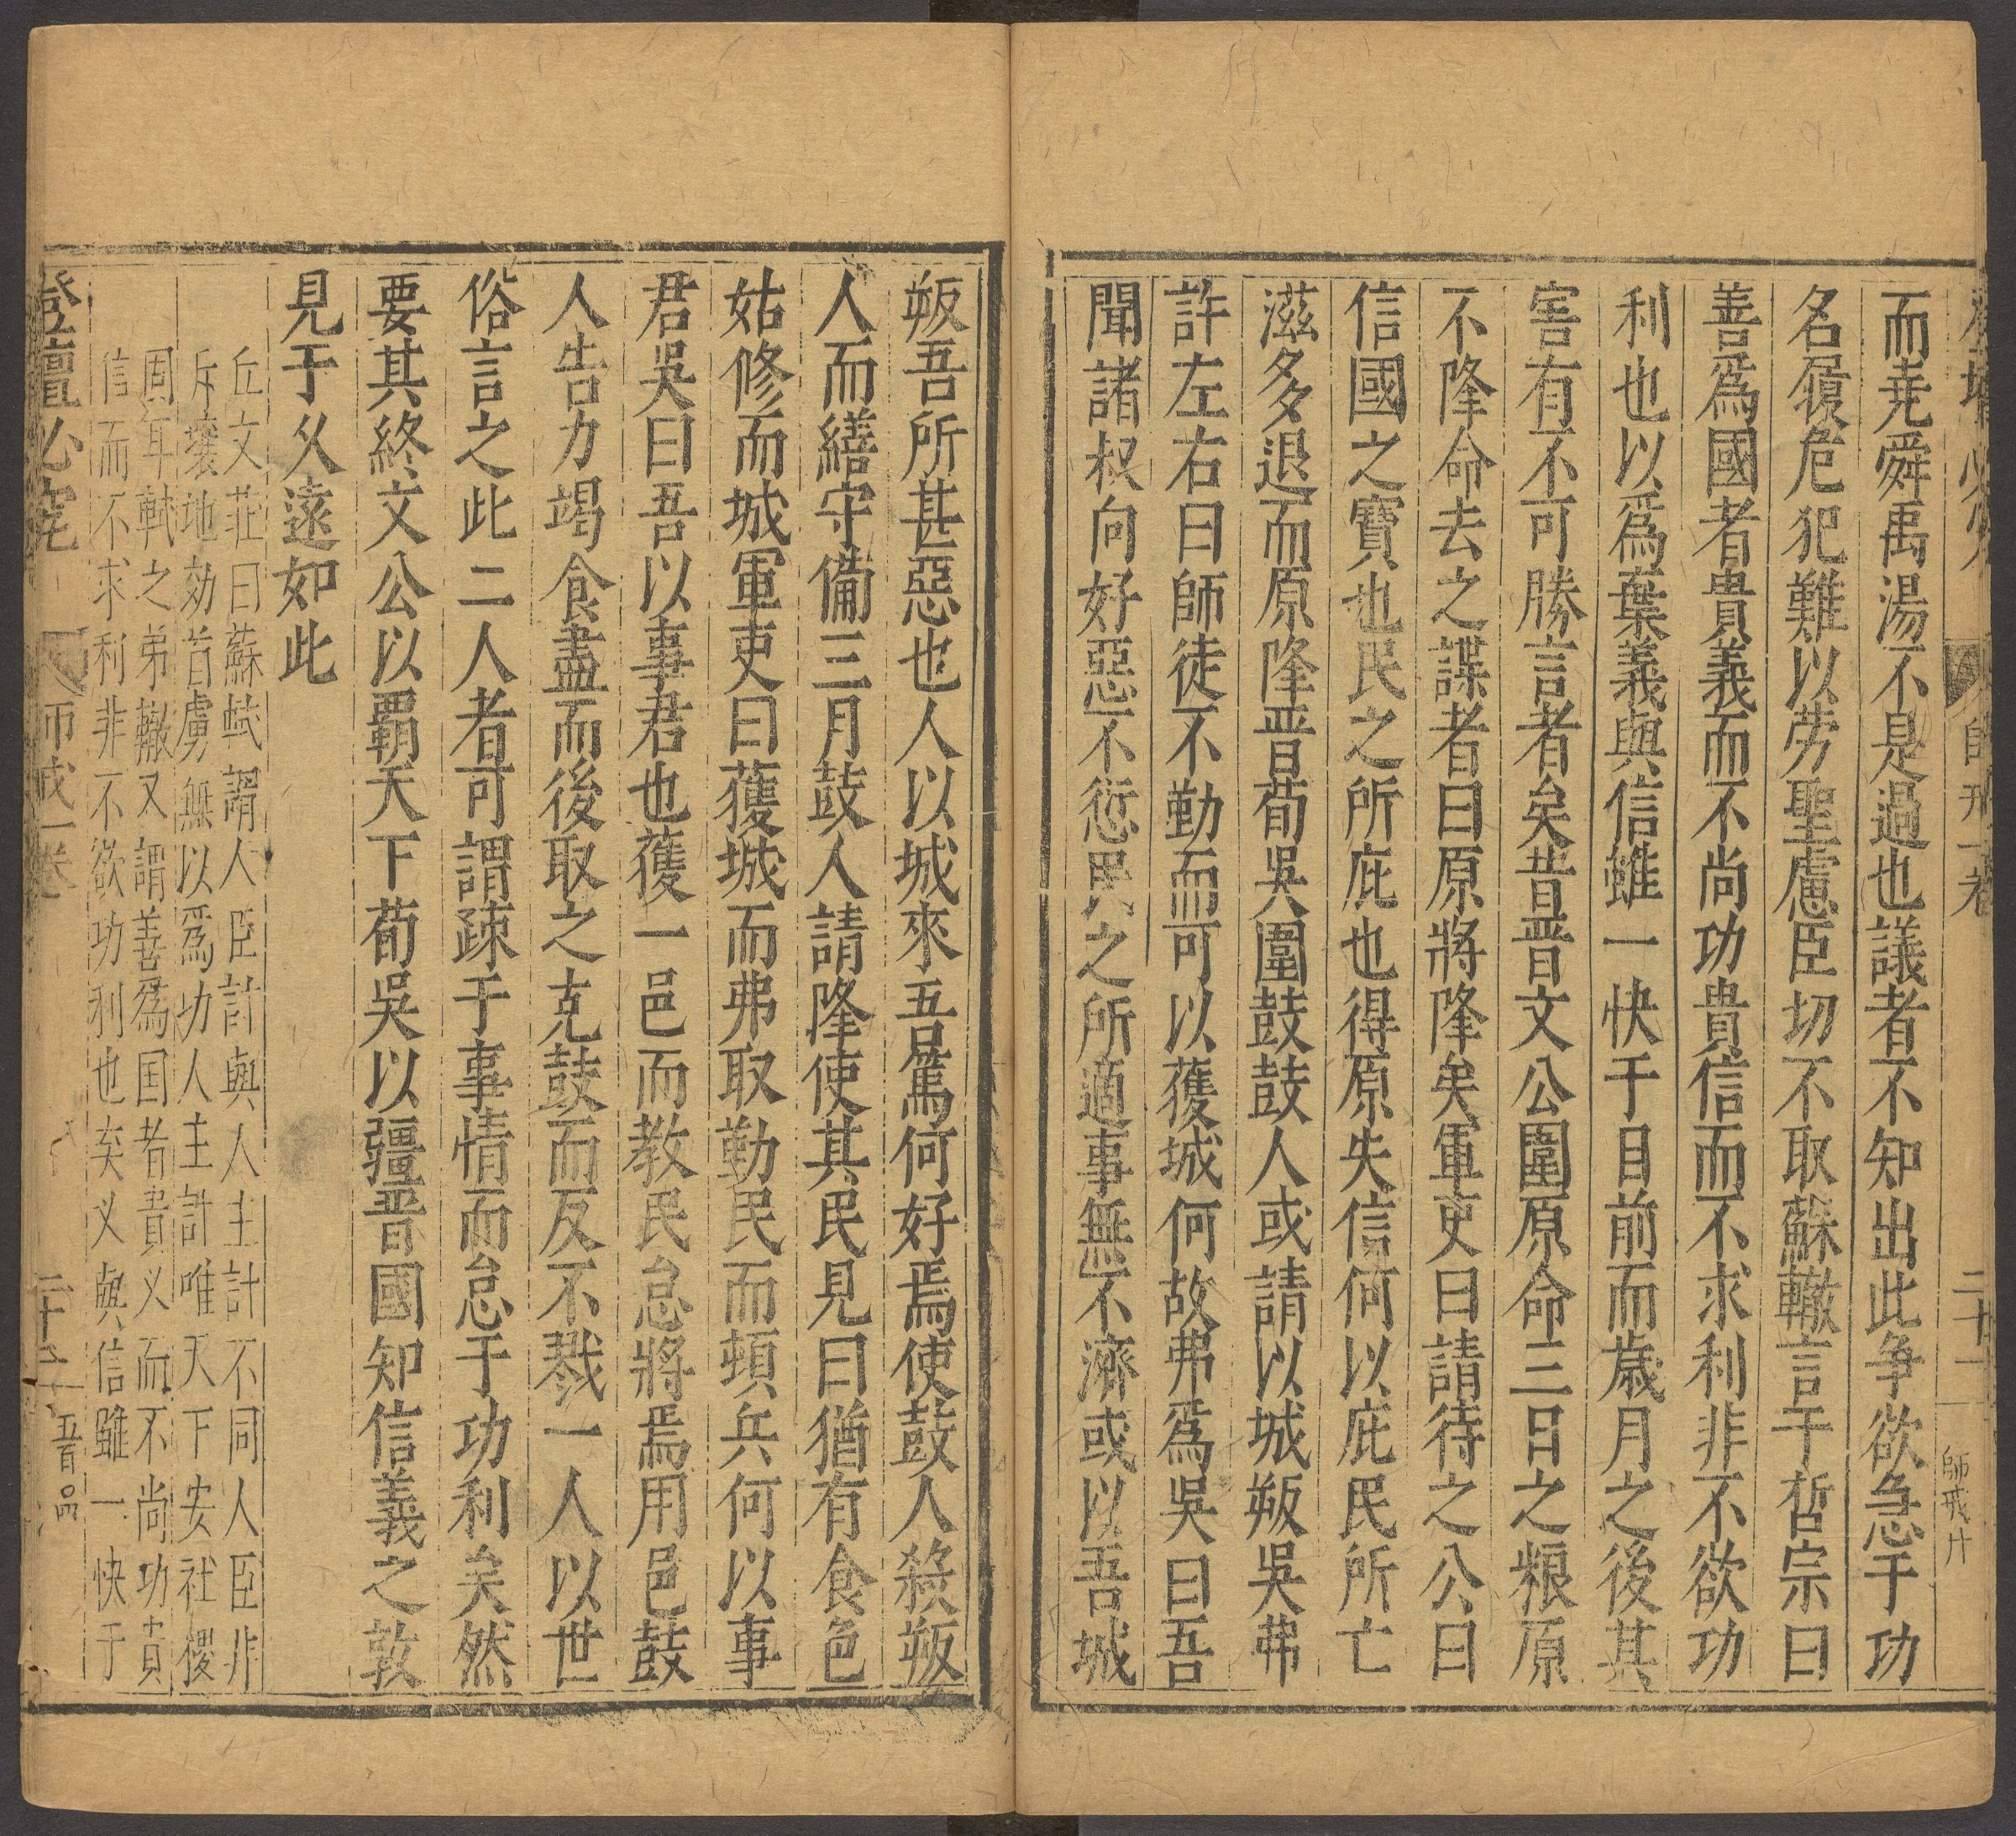 而堯舜禹湯不是過也議者不知出此争欲急于功
名履危犯難以劳聖慮臣切不取蘇轍言于哲宗曰
善爲國者貴義而不尚功貴信而不求利非不欲功
利也以爲棄義與信雖一快于目前而歲月之後其
害有不可勝言者矣昔晋文公圍原命三日之粮原
不降命去之諜者曰原將降矣軍吏曰請待之公曰
信國之寶也民之所庇也得原失信何以庇民所亡
滋多退而原降晋荀吳圍鼓鼓人或請以城叛吳弗
許左右曰師徒不勤而可以獲城何故弗爲吳曰吾
聞諸叔向好惡不愆民之所適事無不濟或以吾城
叛吾所甚惡也人以城來吾篤何好焉使鼓人殺叛
人而繕守備三月鼓人請降使其民見曰猶有食色
姑修而城軍吏曰獲城而弗取勤民而頓兵何以事
君吳曰吾以事君也獲一邑而教民怠將焉用邑鼓
人告力竭食盡而後取之克鼓而反不戮一人以世
俗言之此二人者可謂踈于事情而怠于功利矣然
要其終文公以覇天下荀吳以彊晋國知信義之敦
見于久遠如此
丘文莊曰蘇軾謂人臣計與人主計不同人臣非
斥壤地効首虜無以爲功人主計唯天下安社稷
固耳軾之弟轍又謂善爲国者貴义而不尚功貴
信而不求利非不欲功利也矣义與信雖一快于
登壇必究 師戒一卷